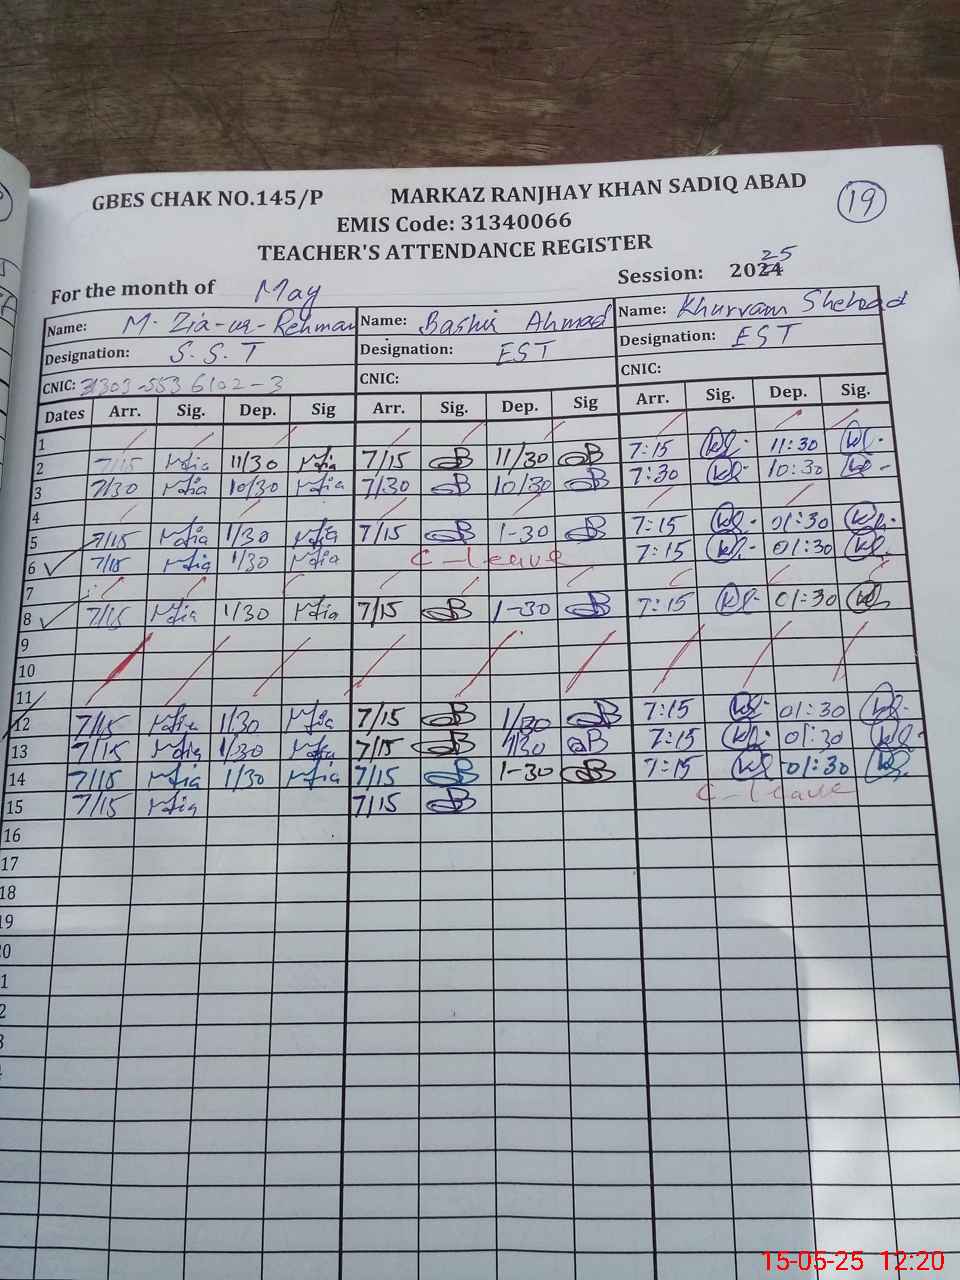 GBES CHAK NO.145/P MARKAZ RANJHAY KHAN SADIQ ABAD
19
EMIS Code: 31340066
TEACHER'S ATTENDANCE REGISTER
For the month of May Session: 2024 25
Name: M. Zia-ur-Rehman Name: Bashir Ahmad Name: Khurram Shehzad
Designation: S.S.T Designation: EST Designation: EST
CNIC: 31303-5536102-3 CNIC: CNIC:
Dates Arr. Sig. Dep. Sig Arr. Sig. Dep. Sig Arr. Sig. Dep. Sig.
1
2 7/15 Zia 11/30 Zia 7/15 B 11/30 B 7:15 11:30
3 7/30 Zia 10/30 Zia 7/30 B 10/30 B 7:30 10:30
4
5 7/15 Zia 1/30 Zia 7/15 B 1-30 B 7:15 01:30
6 7/15 Zia 1/30 Zia C-leave 7:15 01:30
7
8 7/15 Zia 1/30 Zia 7/15 B 1-30 B 7:15 01:30
9
10
11
12 7/15 Zia 1/30 Zia 7/15 B 1/30 B 7:15 01:30
13 7/15 Zia 1/30 Zia 7/15 B 1/30 B 7:15 01:30
14 7/15 Zia 1/30 Zia 7/15 B 1-30 B 7:15 01:30
15 7/15 Zia 7/15 B C-leave
16
17
18
19
0
1
2
3
15-05-25 12:20